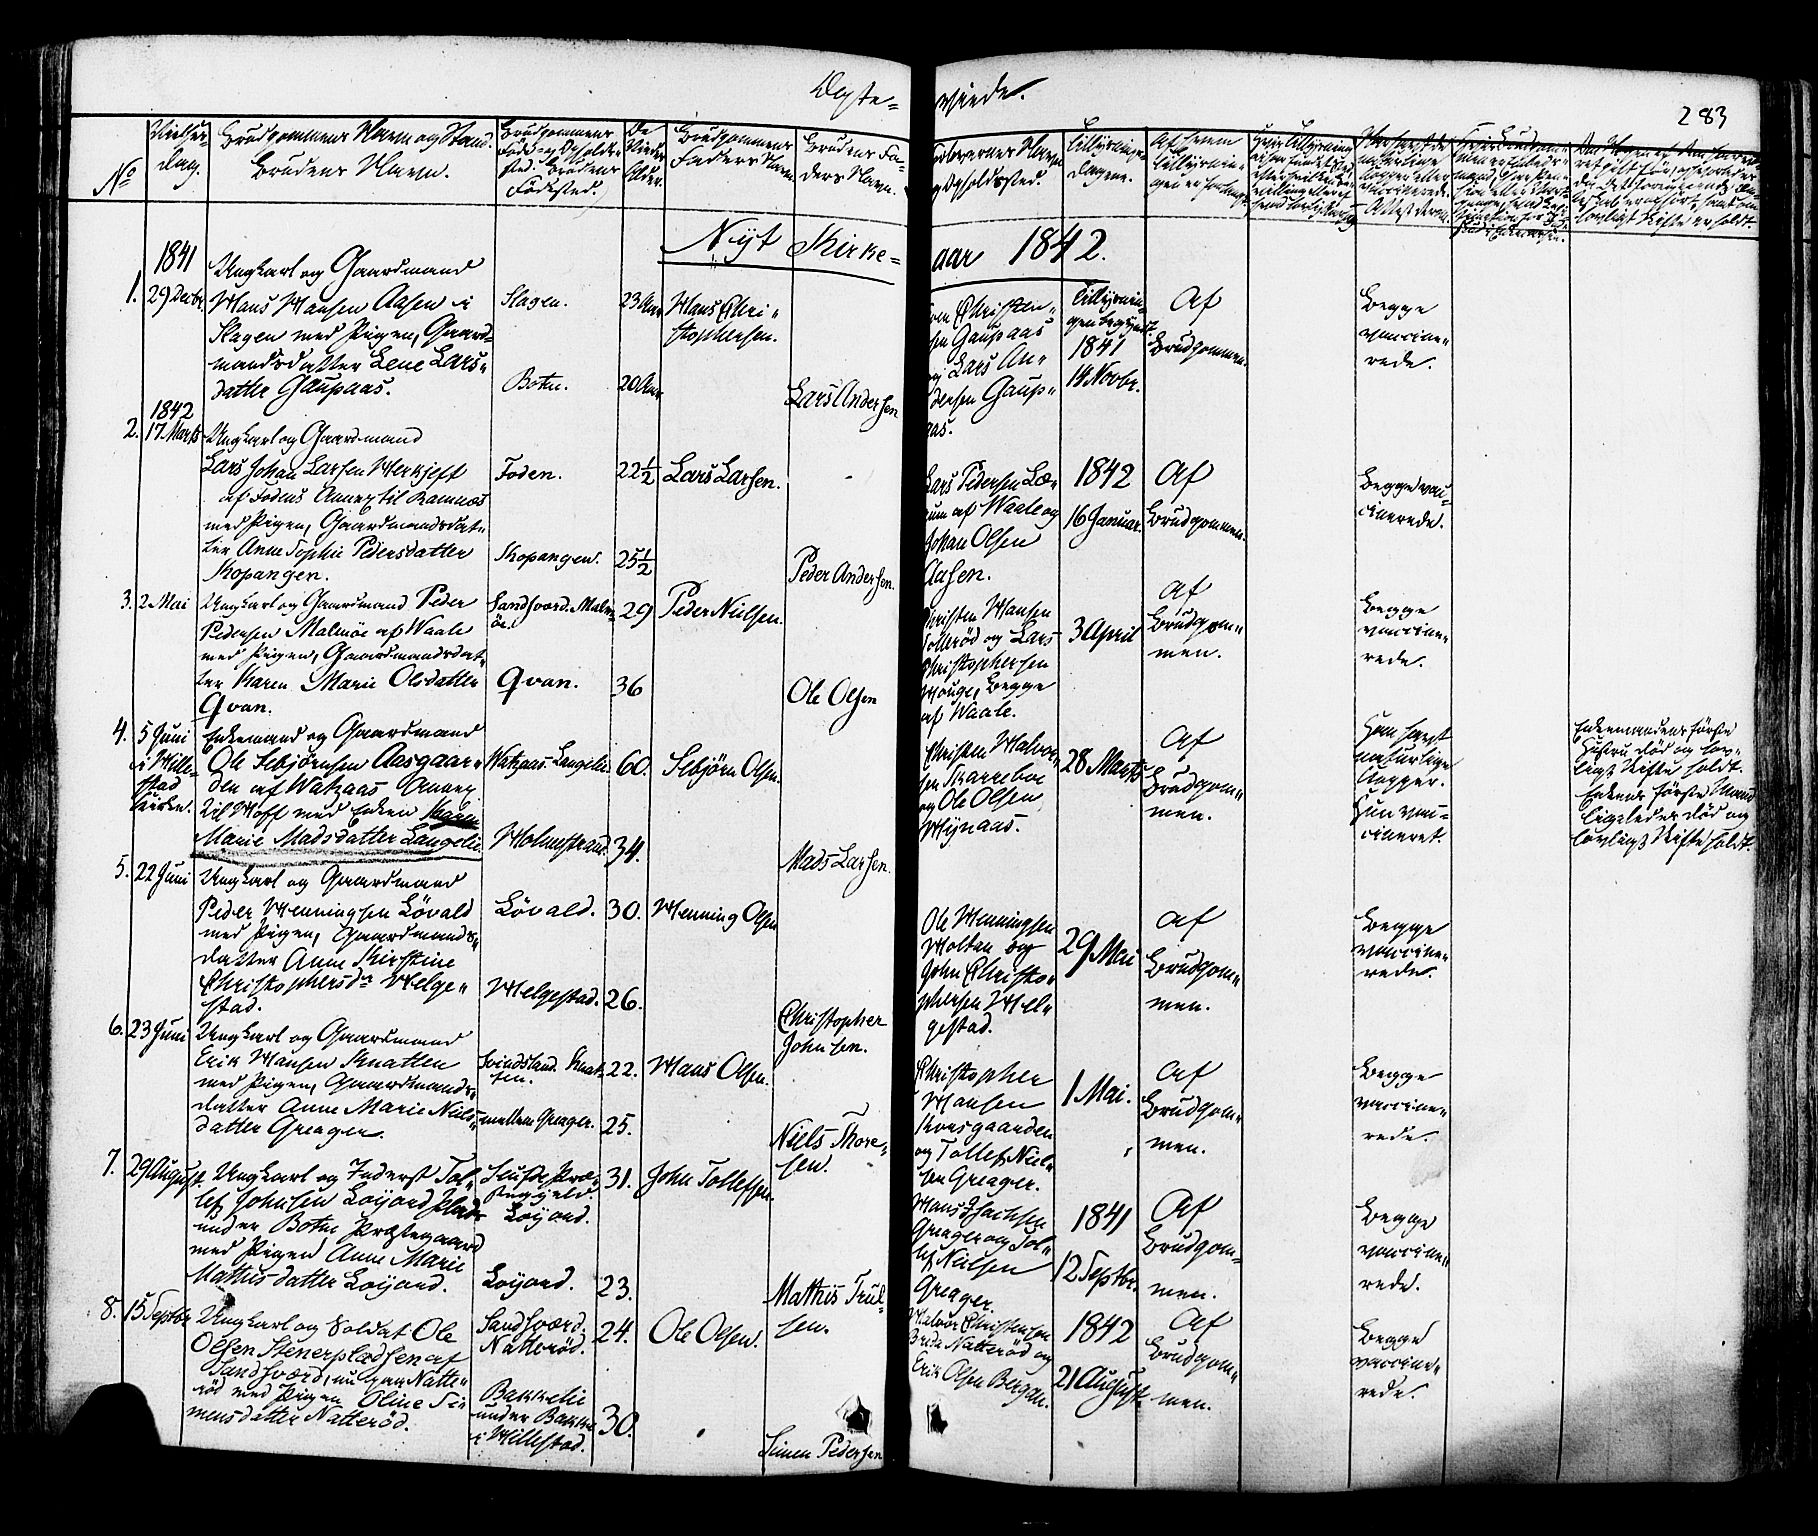 Ægte-
viede.
283
No
Vielses
Dag.
Brudgommens Navn og Stand.
Brudens Navn.
Brudgommens
Føde- og Opholds-
sted. Brudens
Fødested.
De
Viedes
Alder.
Brudgommens
Faders Navn.
Brudens Fa-
ders Navn.
Forlovernes Navn
og Opholdssted.
Tillysnings-
dagene.
Af hvem
Tillysnin-
gen er forlangt.
Nyt Kirke-
aar 1842.
1841
1. 29 Decbr.
Ungkarl og Gaardmand
Hans Hansen Aasen i
Slagen med Pigen, Gaard-
mandsdatter Lene Lars-
datter Gaupaas.
Slagen.
Botne.
23 Aar
20 Aar
Hans Chri-
stophersen.
Lars Andersen
Christen-
sen Gaupaas
og Lars An-
dersen Gaup-
aas.
Tillysnin-
gen begyndt.
1841
14 Novbr.
Af
Brudgommen.
Begge
vaccine-
rede.
1842
2. 17 Marts
Ungkarl og Gaardmand
Lars Johan Larsen
af Fodens Annex til Ramnæs
med Pigen, Gaardmandsdat-
ter Anne Sophie Pedersdatter
Kopangen.
Foden.
Kopangen.
22½
25½
Lars Larsen.
Peder Andersen.
Lars Pedersen Læ-
rum af Waale og
Johan Olsen
Aasen.
1842
16 Januar.
Af
Brudgommen.
Begge vac-
cinerede.
3. 2 Mai
Ungkarl og Gaardmand Peder
Pedersen Malmøe af Waale
med Pigen, Gaardmandsdat-
ter Karen Marie Olsdatter
Qvan.
Sandsværd. Malm-
øe.
Qvan.
29
36
Peder Nielsen.
Ole Olsen
Christen Hansen
Tollerød og Lars
Christophersen
Houge, begge
af Waale.
3 April
Af
Brudgom-
men.
Begge
vaccine-
rede.
4. 5 Juni
i Hille-
stad
Kirke.
Enkemand og Gaardmand
Ole Sebjørnsen Aasgaar-
den af Watsaas Annex
til Hoff med Enken Karen
Marie Madsdatter Langelie.
Watsaas. Langelie.
Holmestrand.
60.
34.
Sebjørn Olsen.
Mads Larsen.
Christen Halvor-
sen Skarreboe
og Ole Olsen
Hynaas.
28 Marts
Af
Brudgom-
men.
Han havt
naturlige
Kopper.
Hun vac-
cineret.
Enkemandens første
Hustru død og lov-
ligt Skifte holdt.
Enkens første Mand
ligeledes død og
lovligt Skifte holdt.
5. 22 Juni
Ungkarl og Gaardmand
Peder Henningsen Løvald
med Pigen, Gaardmands-
datter Anne Kirstine
Christophersdr Helge-
stad.
Løvald.
Helgestad.
30.
26.
Henning Olsen
Christopher
Johnsen.
Ole Henningsen
Holtan og
John Christo-
phersen Hel-
gestad.
29 Mai
Af
Brudgom-
men.
Begge
vaccine-
rede.
6. 23 Juni
Ungkarl og Gaardmand
Erik Hansen Knatten
med Pigen, Gaardmands-
datter Anne Marie Niels-
datter Greager.
Svindsland. Knat-
ten.
mellem Greager.
22.
25.
Hans Olsen.
Niels Thore-
sen.
Christopher
Hansen
Korsgaarden
og Tollef Niel-
sen Greager.
1 Mai.
Af
Brudgom-
men.
Begge
vaccine-
rede.
7. 29 August.
Ungkarl og Inderst Tol-
lef Johnsen Løyord Plads
under Botne Præstegaard
med Pigen Anne Marie
Mathisdatter Løyord.
Præ-
stegjeld.
Løyord.
Løyord.
31.
23.
John Tollefsen.
Mathis Trul-
sen.
Hans Isachsen
Greager og Tol-
lef Nielsen
Greager.
1841
12 Septbr.
Af
Brudgom-
men.
Begge
vaccine-
rede.
8. 15 Septbr
Ungkarl og Soldat Ole
Olsen Stenerplædsen af
Sandsværd, nu paa Natte-
rød med Pigen Oline Si-
mensdatter Natterød.
Sandsværd.
Natterød.
Bakkelie
under Bakke
i Hillestad.
24.
30.
Ole Olsen.
Simen Pedersen
Halvor Christensen
Natterød og
Erik Olsen Bergan.
1842
21 August.
Af
Brudgom-
men.
Begge
vaccine-
rede.